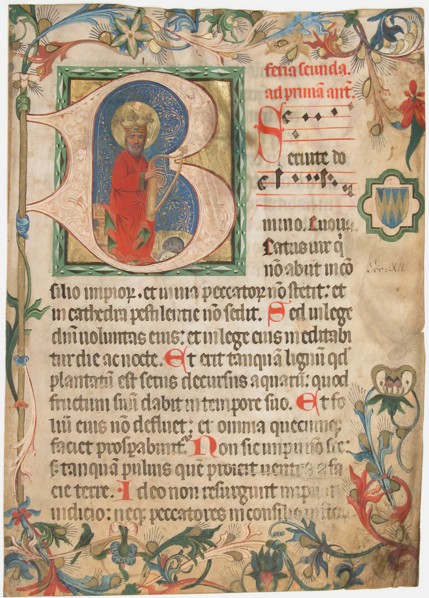 feria secunda.
ad primā ant̄.
Seruite do
mino. Euou
B eatus uir q̄
nō abiit in cō
silio impioꝝ. et in uia peccatoꝝ nō stetit: et
in cathedra pestilentie nō sedit. Sed in lege
dn̄i uoluntas eius: et in lege eius meditabi
tur die ac nocte. Et erit tanquā lignū qd̄
plantatū est secus decursus aquarū: quod
fructum suū dabit in tempore suo. Et fo
liū eius nō defluet: et omnia quecunqꝫ
faciet prosꝑabunt̄. Non sic impii nō sic:
sꝫ tanquā puluis quē proicit uentus a fa
cie terre. Ideo non resurgunt impii in
iudicio: neqꝫ peccatores in consilio